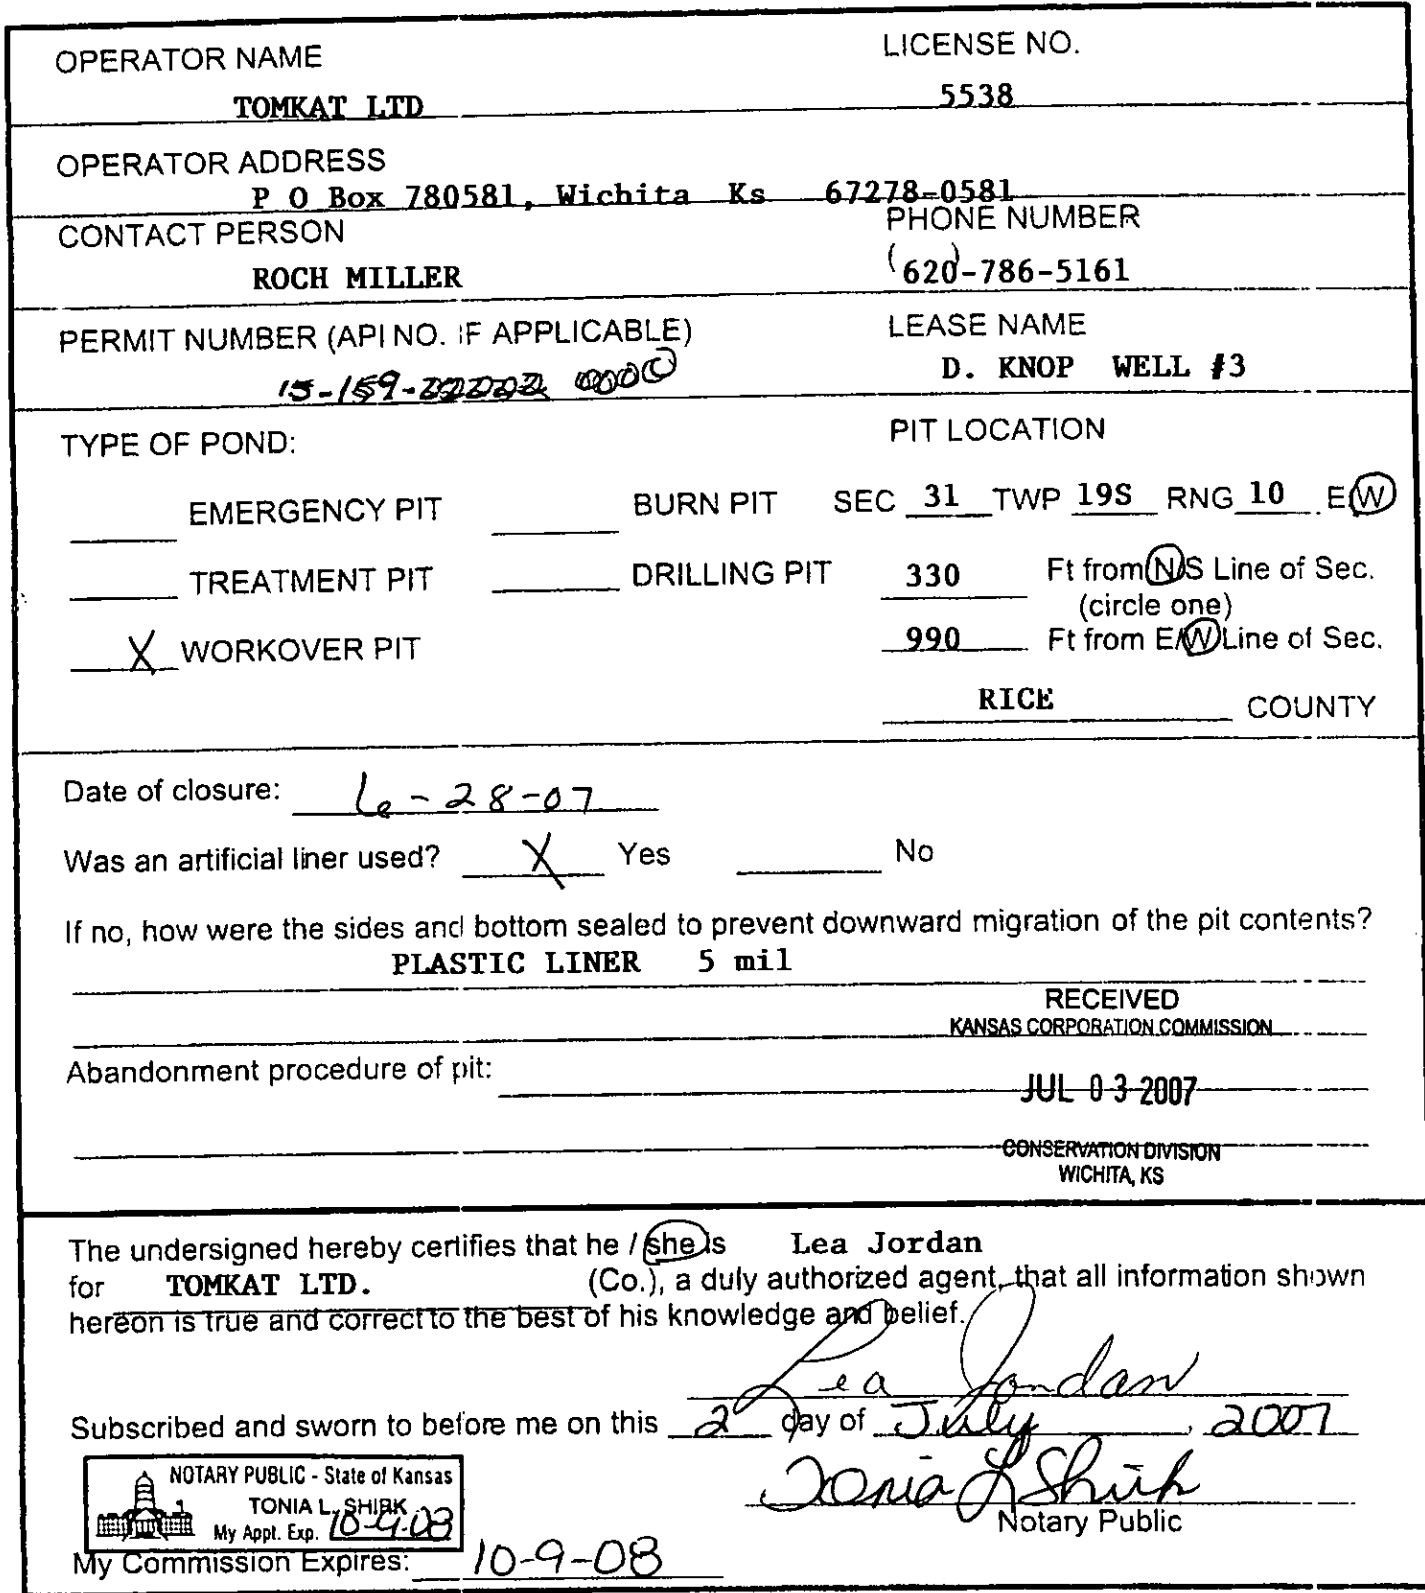 OPERATOR NAME LICENSE NO.
TOMKAT LTD 5538
OPERATOR ADDRESS
P O Box 780581, Wichita Ks 67278-0581
CONTACT PERSON PHONE NUMBER
ROCH MILLER (620)-786-5161
PERMIT NUMBER (API NO. IF APPLICABLE) LEASE NAME
D. KNOP WELL #3
15-159-
TYPE OF POND: PIT LOCATION
EMERGENCY PIT BURN PIT SEC 31 TWP 19S RNG 10 E/W
TREATMENT PIT DRILLING PIT 330 Ft from N/S Line of Sec.
(circle one)
X WORKOVER PIT 990 Ft from E/W Line of Sec.
RICE COUNTY
Date of closure: 6-28-07
Was an artificial liner used? X Yes No
If no, how were the sides and bottom sealed to prevent downward migration of the pit contents?
PLASTIC LINER 5 mil
RECEIVED
KANSAS CORPORATION COMMISSION
Abandonment procedure of pit:
JUL 03 2007
CONSERVATION DIVISION
WICHITA, KS
The undersigned hereby certifies that he / she is Lea Jordan
for TOMKAT LTD. (Co.), a duly authorized agent, that all information shown
hereon is true and correct to the best of his knowledge and belief.
Lea Jordan
Subscribed and sworn to before me on this 2 day of July, 2007
Tonia L Shirk
Notary Public
NOTARY PUBLIC - State of Kansas
TONIA L. SHIRK
My Appt. Exp. 10-9-08
My Commission Expires: 10-9-08